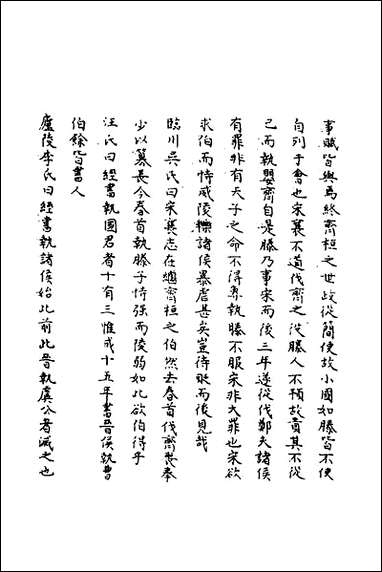 事職皆與焉終齊桓之世政從簡便故小國如滕皆不使
自列于會也宋襄不道伐齊之役滕人不預故責其不從
已而執嬰齊自是滕乃事宋而後三年遂從伐鄭夫諸侯
有罪非有天子之命不得專執滕不服宋非大罪也宋欲
求伯而恃威陵轢諸侯暴虐甚矣豈待敗而後見哉
臨川吳氏曰宋襄志在繼齊桓之伯然去春首伐齊喪奉
少以簒長今春首執滕子恃强而陵弱如此欲伯得乎
汪氏曰經書執國君者十有三惟成十五年書晋侯執曹
伯餘皆書人
廬陵李氏曰經書執諸侯始此前此晋執虞公者滅之也